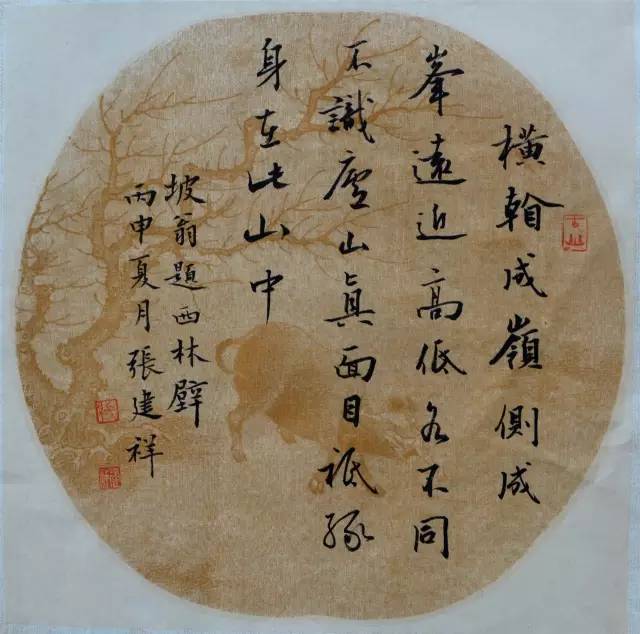 橫翰成嶺側成
峯遠近高低各不同
不識廬山眞面目祗緣
身在此山中
坡翁題西林壁
丙申夏月張建祥